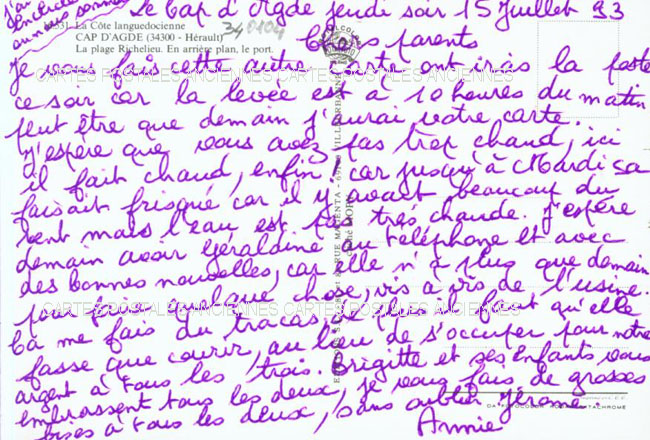 Le Cap d'Agde jeudi soir 15 Juillet 93
10531 La Côte languedocienne
CAP D'AGDE (34300 - Hérault)
La plage Richelieu. En arrière plan, le port.
340104
Chers parents
Je vous fais cette autre carte ont irais la poste
ce soir car la levée est à 10 heures du matin
peut être que demain j'aurai votre carte.
J'espère que vous avez pas trop chaud, ici
il fait chaud, enfin car jusqu'à Mardi sa
faisait frisqué car il y avait beaucoup du
vent mais l'eau est pas très chaude. J'espère
demain avoir Géraldine au téléphone et avec
des bonnes nouvelles, car elle n'a plus que demain
pour faire quelque chose, vis à vis de l'usine.
Cà me fais du tracas, car il faut qu'elle
fasse que courir, au lieu de s'occuper pour notre
argent à tous les trois. Brigitte et ses Enfants vous
embrassent tous les deux, je vous fais de grosses
bises à tous les deux, sans oublier Jérome.
Annie
CARTES POSTALES ANCIENNES CARTES POSTALES ANCIENNES
CARTES POSTALES ANCIENNES CARTES POSTALES ANCIENNES